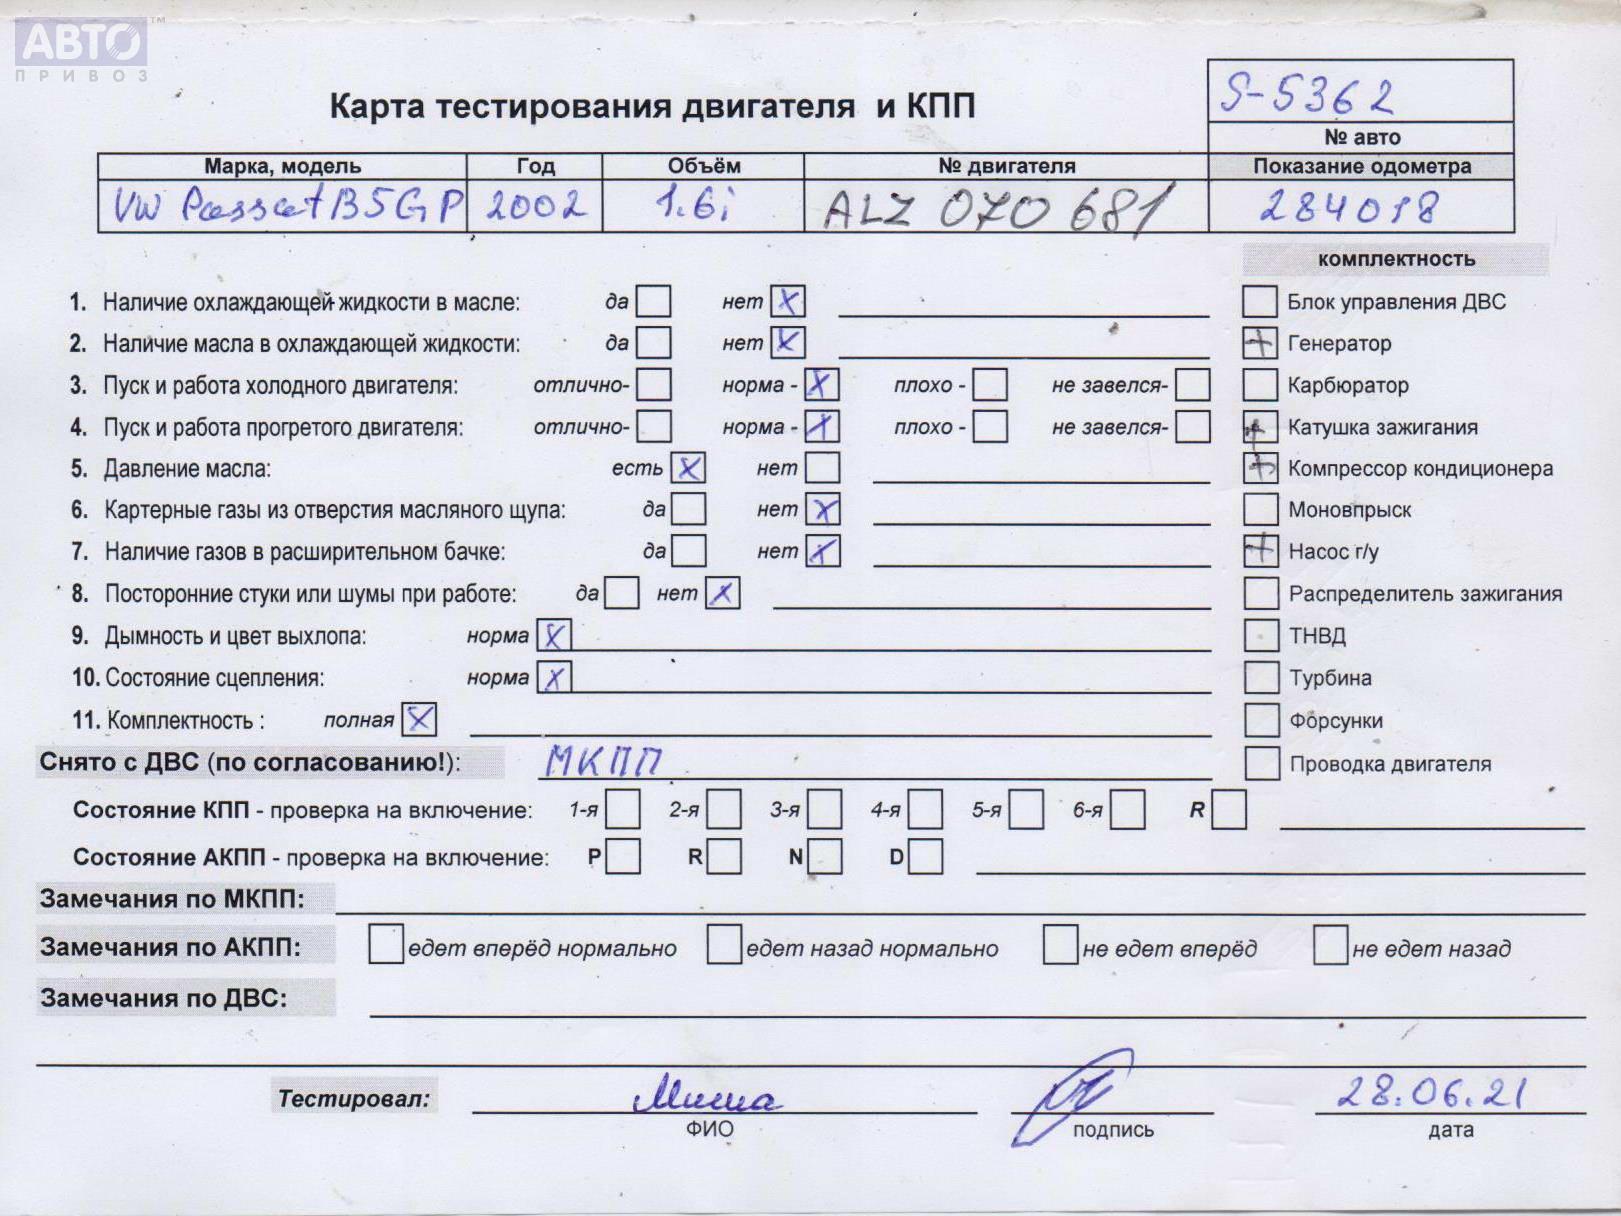 АВТО™
ПРИВОЗ
S-5362
Карта тестирования двигателя и КПП
№ авто
Марка, модель Год Объём № двигателя Показание одометра
VW Passat B5GP 2002 1.6i ALZ 070 681 284018
комплектность
1. Наличие охлаждающей жидкости в масле: да нет X Блок управления ДВС
2. Наличие масла в охлаждающей жидкости: да нет X + Генератор
3. Пуск и работа холодного двигателя: отлично- норма - X плохо - не завелся- Карбюратор
4. Пуск и работа прогретого двигателя: отлично- норма - X плохо - не завелся- + Катушка зажигания
5. Давление масла: есть X нет + Компрессор кондиционера
6. Картерные газы из отверстия масляного щупа: да нет X Моновпрыск
7. Наличие газов в расширительном бачке: да нет X + Насос г/у
8. Посторонние стуки или шумы при работе: да нет X Распределитель зажигания
9. Дымность и цвет выхлопа: норма X ТНВД
10. Состояние сцепления: норма X Турбина
11. Комплектность : полная X Форсунки
Снято с ДВС (по согласованию!): МКПП Проводка двигателя
Состояние КПП - проверка на включение: 1-я 2-я 3-я 4-я 5-я 6-я R
Состояние АКПП - проверка на включение: P R N D
Замечания по МКПП:
Замечания по АКПП: едет вперёд нормально едет назад нормально не едет вперёд не едет назад
Замечания по ДВС:
Тестировал: Миша 28.06.21
ФИО подпись дата